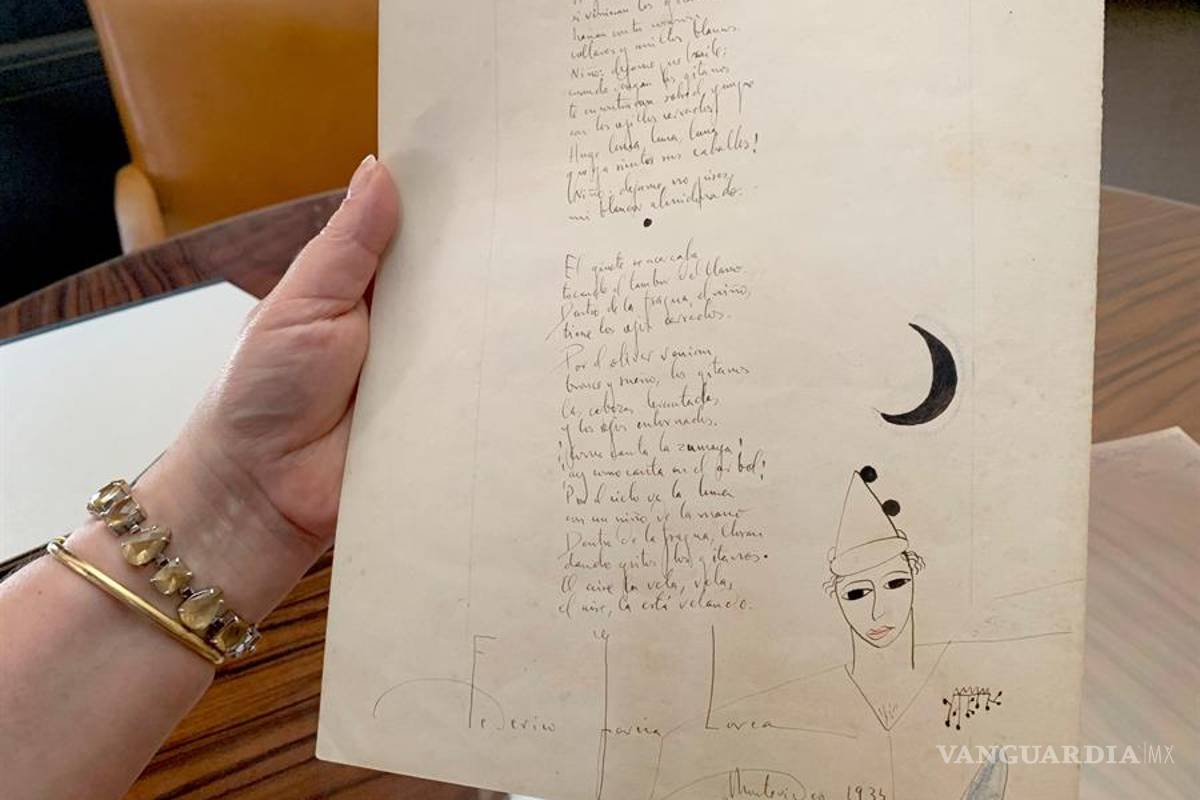 si vinieran los gitanos
harían con tu corazón
collares y anillos blancos.
Niño: déjame que baile;
cuando vengan los gitanos
te encontrarán sobre el yunque
con los ojillos cerrados.
Huye luna, luna, luna
que ya siento sus caballos!
Niño: déjame, no pises,
mi blancor almidonado.
El jinete se acercaba
tocando el tambor del llano.
Dentro de la fragua, el niño,
tiene los ojos cerrados.
Por el olivar venían
bronce y sueño, los gitanos
las cabezas levantadas,
y los ojos entornados.
¡Como canta la zumaya!
¡ay como canta en el árbol!
Por el cielo va la luna
con un niño de la mano
Dentro de la fragua, lloran
dando gritos, los gitanos.
El aire la vela, vela,
el aire, la está velando.
Federico García Lorca
Montevideo 1934
VANGUARDIA|MX